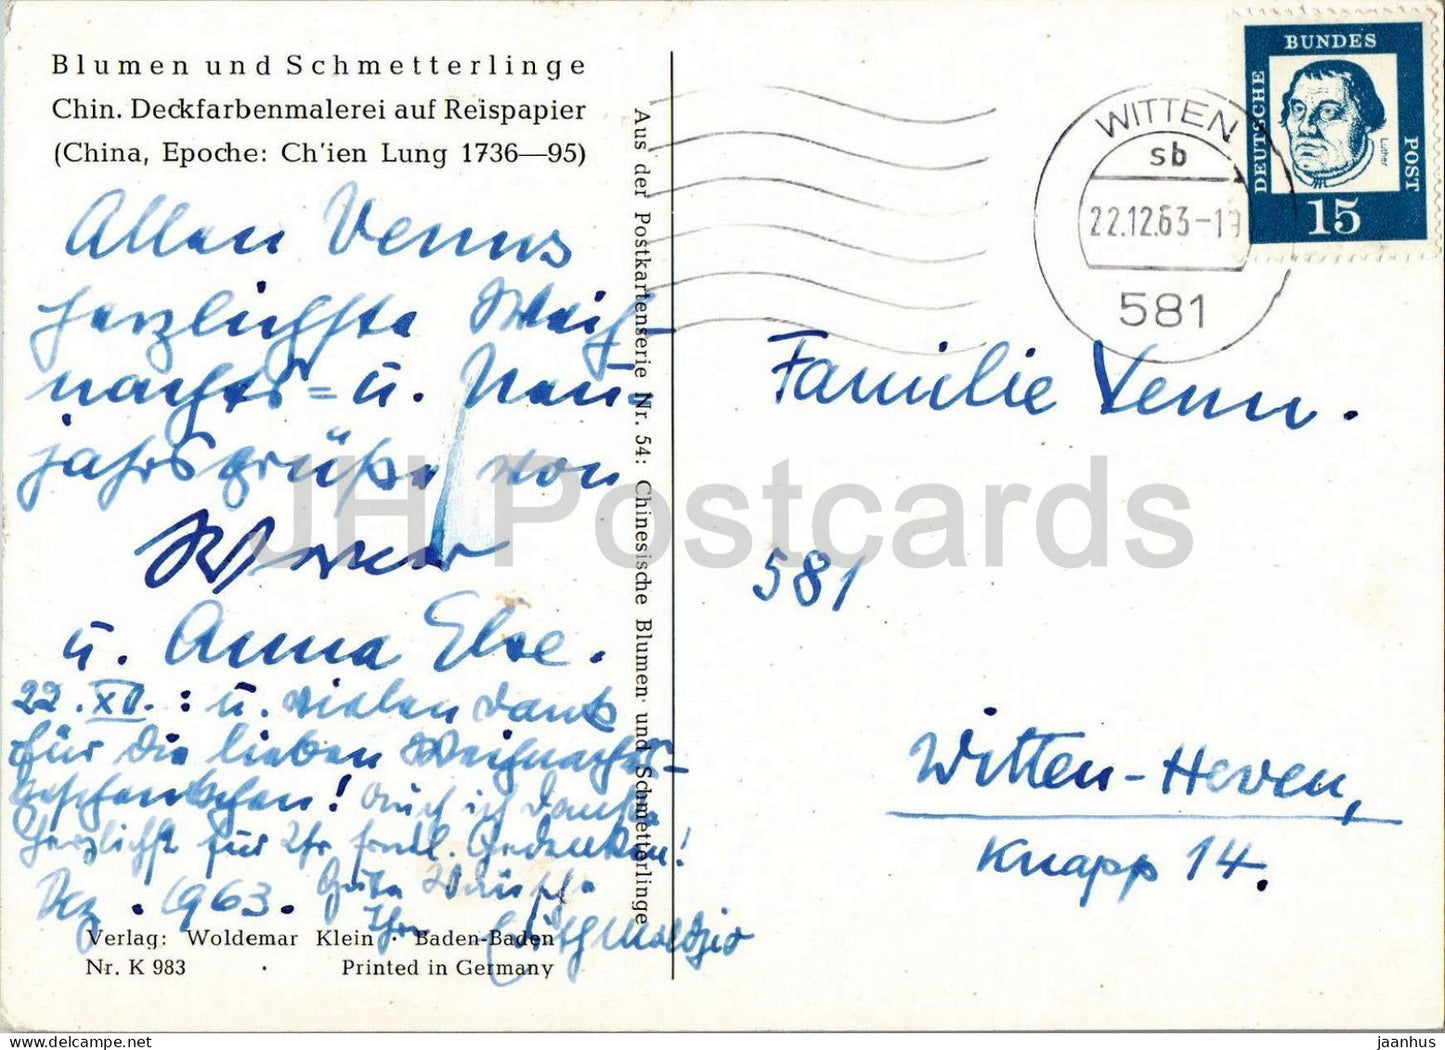 Blumen und Schmetterlinge
Chin. Deckfarbenmalerei auf Reispapier
(China, Epoche: Ch'ien Lung 1736—95)
Allen Venns
herzlichste Weih-
nachts= u. Neu-
jahrsgrüße von
u. Anna Else.
22. XII. : u. vielen Dank
für die lieben Weihnachts-
geschenkchen! Auch ich danke
herzlichst für Ihr frdl. Gedenken!
Dez. 1963. Gute Wünsche
Ihre
Verlag: Woldemar Klein · Baden-Baden
Nr. K 983 · Printed in Germany
Aus der Postkartenserie Nr. 54: Chinesische Blumen und Schmetterlinge
WITTEN
sb
22.12.63-19
581
DEUTSCHE
BUNDES
POST
Luther
15
Familie Venn.
581
Witten-Heven,
Knapp 14.
JH Postcards
jaanhus @ delcampe.net